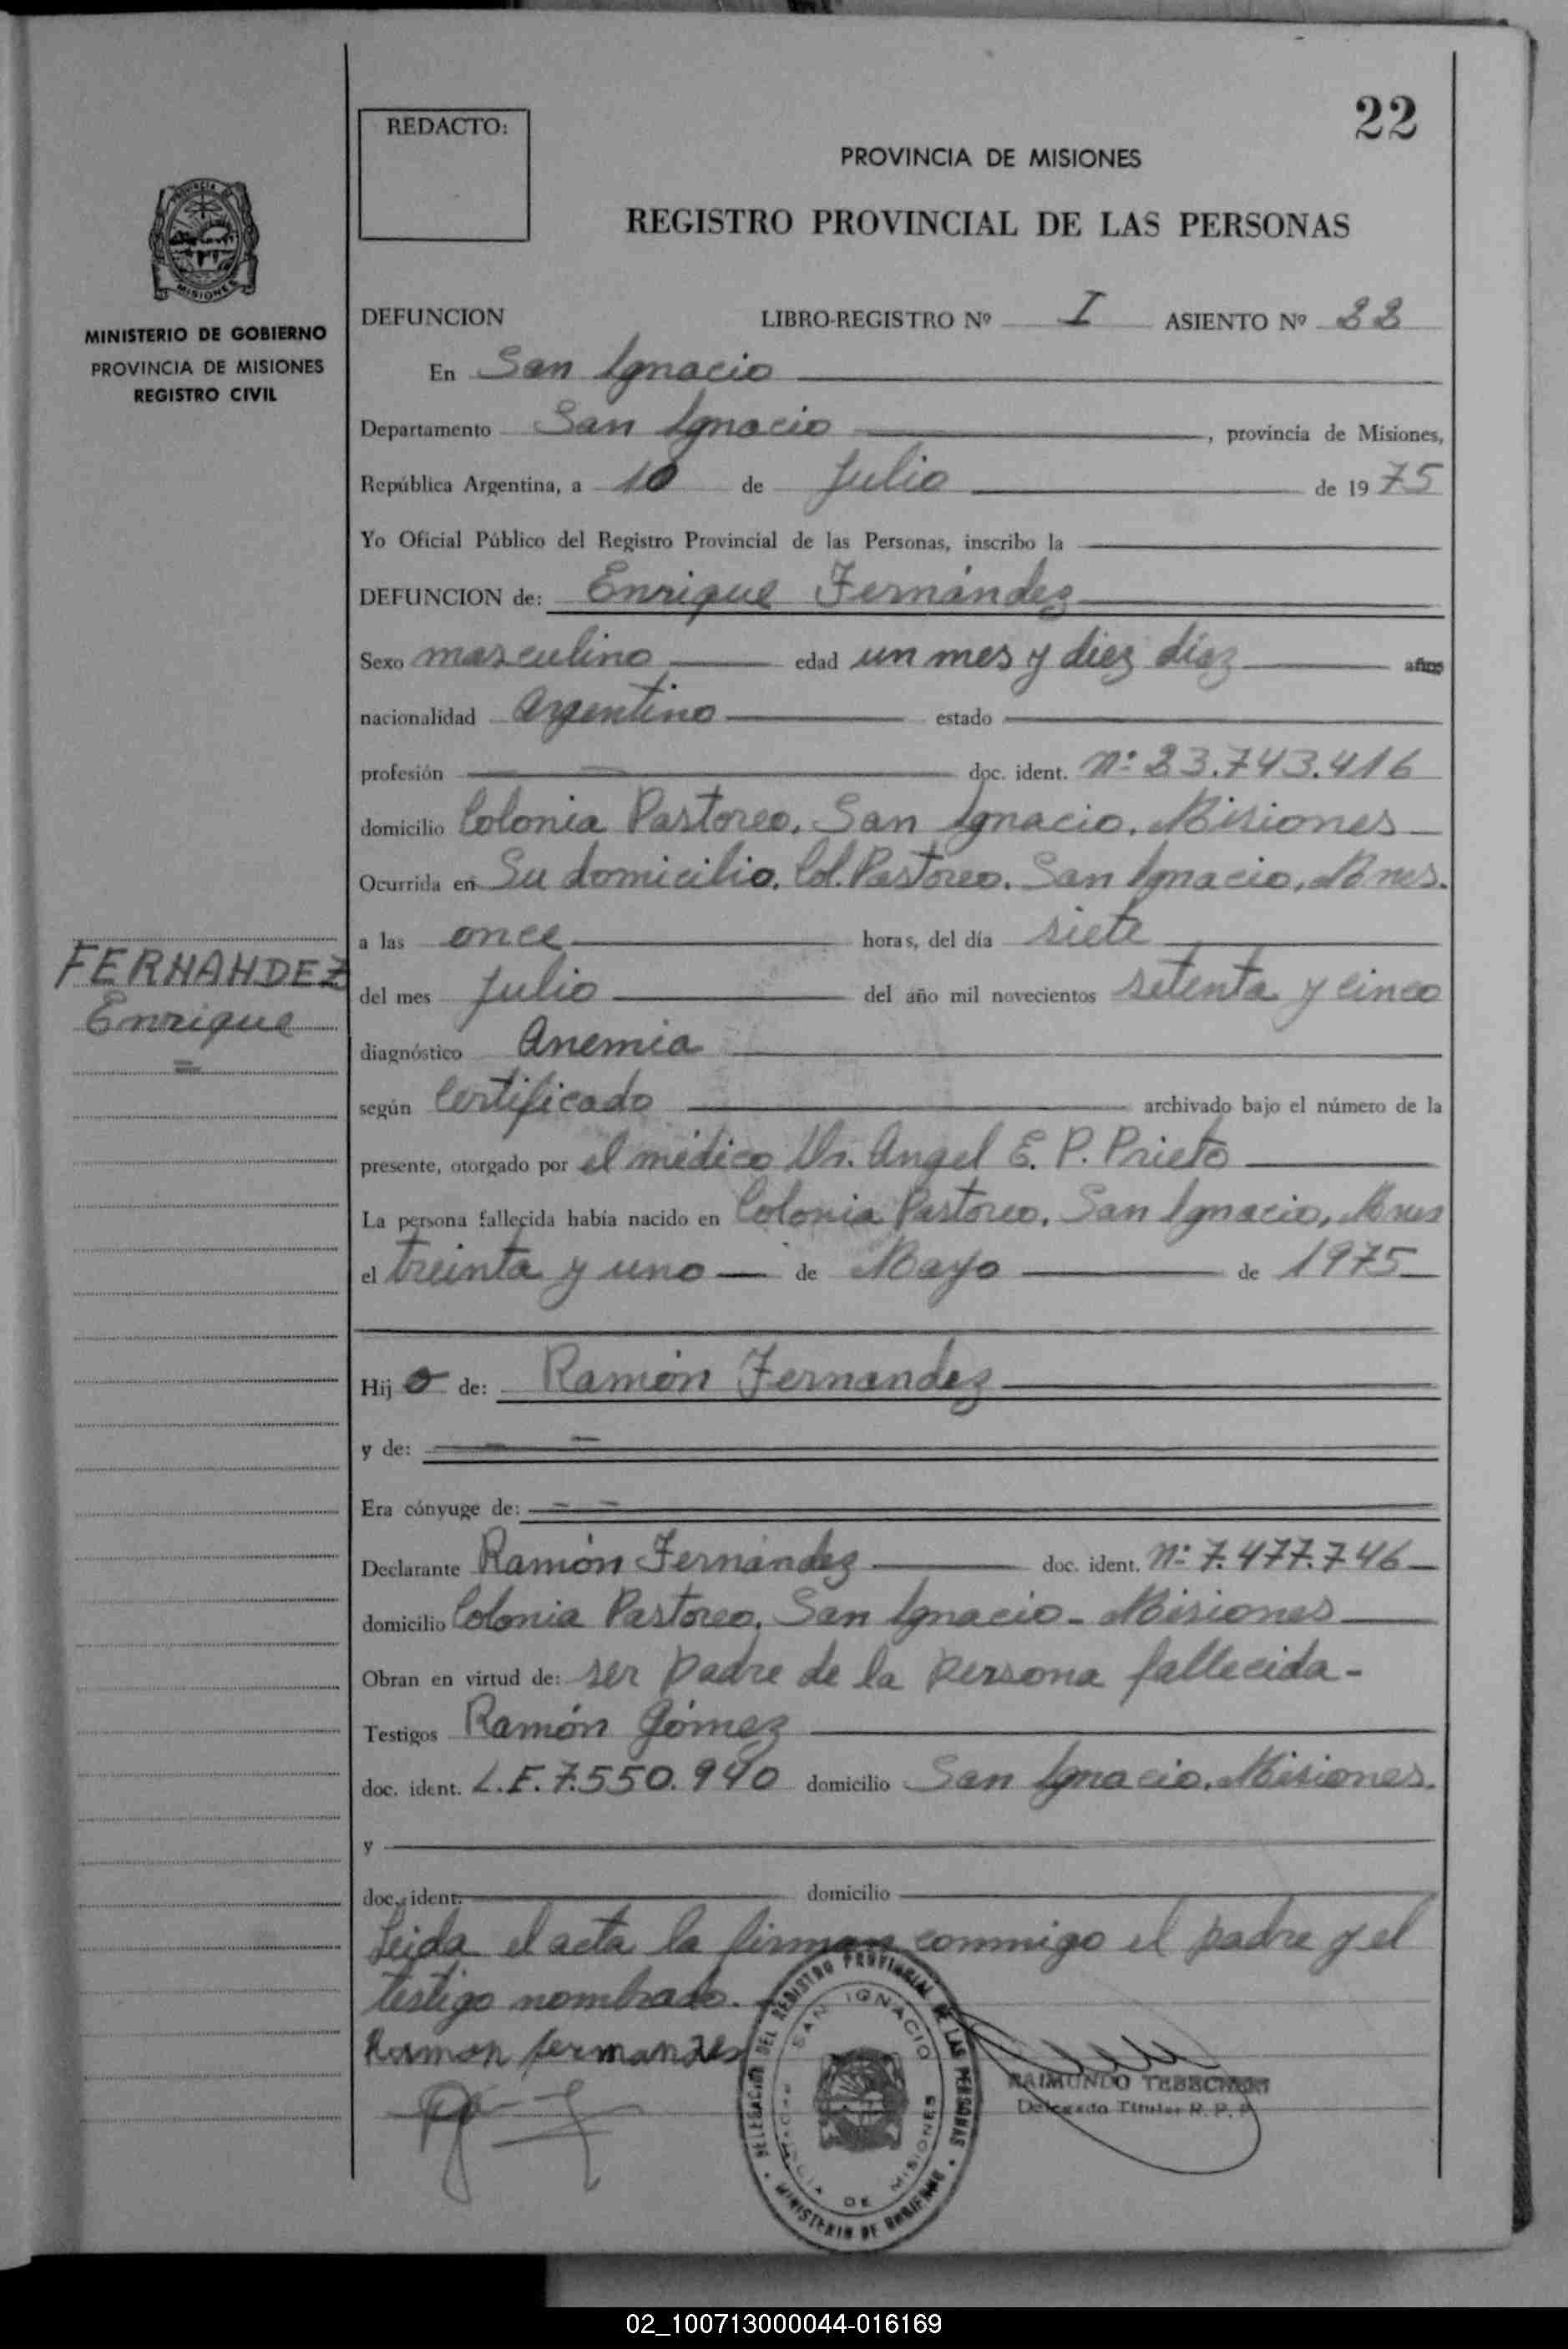 22
REDACTO:
PROVINCIA DE MISIONES
REGISTRO PROVINCIAL DE LAS PERSONAS
MINISTERIO DE GOBIERNO
PROVINCIA DE MISIONES
REGISTRO CIVIL
DEFUNCION LIBRO-REGISTRO Nº I ASIENTO Nº 22
En San Ignacio
Departamento San Ignacio, provincia de Misiones,
República Argentina, a 10 de Julio de 1975
Yo Oficial Público del Registro Provincial de las Personas, inscribo la
DEFUNCION de: Enrique Fernández
Sexo masculino edad un mes y diez díaz años
nacionalidad Argentino estado
profesión doc. ident. Nº 23.743.416
domicilio Colonia Pastoreo, San Ignacio, Misiones
Ocurrida en Su domicilio, Col. Pastoreo, San Ignacio, Mnes.
a las once horas, del día siete
del mes Julio del año mil novecientos setenta y cinco
FERNANDEZ
Enrique
diagnóstico Anemia
según Certificado archivado bajo el número de la
presente, otorgado por el médico Dr. Angel E. P. Prieto
La persona fallecida había nacido en Colonia Pastoreo, San Ignacio, Mnes
el treinta y uno de Mayo de 1975
Hijo de: Ramón Fernandez
y de:
Era cónyuge de:
Declarante Ramón Fernández doc. ident. Nº 7.477.746
domicilio Colonia Pastoreo, San Ignacio - Misiones
Obran en virtud de: ser padre de la persona fallecida -
Testigos Ramón Gómez
doc. ident. L.E. 7.550.940 domicilio San Ignacio, Misiones.
y
doc. ident. domicilio
Leida el acta la firman conmigo el padre y el
testigo nombrado.
Ramon fernandes
DELEGACION DEL REGISTRO PROVINCIAL DE LAS PERSONAS
SAN IGNACIO
PROVINCIA DE MISIONES
MINISTERIO DE GOBIERNO
RAIMUNDO
Delegado Titular R. P. P.
02_100713000044-016169